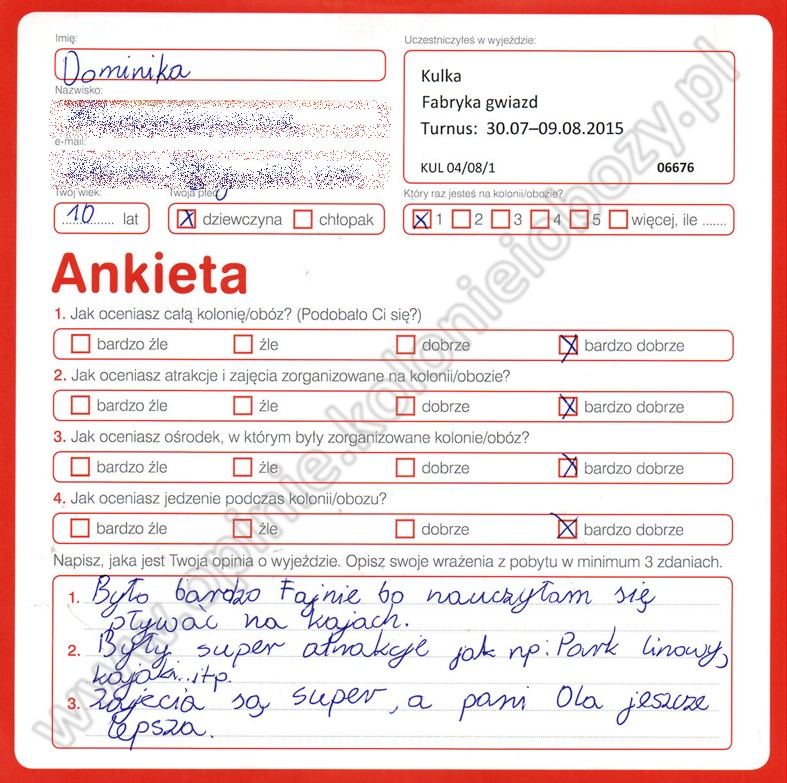 Imię:
Uczestniczyłeś w wyjeździe:
Dominika
Kulka
Fabryka gwiazd
Turnus: 30.07–09.08.2015
KUL 04/08/1 06676
Nazwisko:
e-mail:
Twój wiek: Twoja płeć
Który raz jesteś na kolonii/obozie?
10 lat
X dziewczyna chłopak
X 1 2 3 4 5 więcej, ile .......
Ankieta
1. Jak oceniasz całą kolonię/obóz? (Podobało Ci się?)
bardzo źle źle dobrze X bardzo dobrze
2. Jak oceniasz atrakcje i zajęcia zorganizowane na kolonii/obozie?
bardzo źle źle dobrze X bardzo dobrze
3. Jak oceniasz ośrodek, w którym były zorganizowane kolonie/obóz?
bardzo źle źle dobrze X bardzo dobrze
4. Jak oceniasz jedzenie podczas kolonii/obozu?
bardzo źle źle dobrze X bardzo dobrze
Napisz, jaka jest Twoja opinia o wyjeździe. Opisz swoje wrażenia z pobytu w minimum 3 zdaniach.
1. Było bardzo Fajnie bo nauczyłam się
pływać na kajach.
2. Były super atrakcje jak np: Park linowy,
kajaki..itp.
3. Zajęcia są super, a pani Ola jeszcze
lepsza.
www.opinie.kolonieiobozy.pl